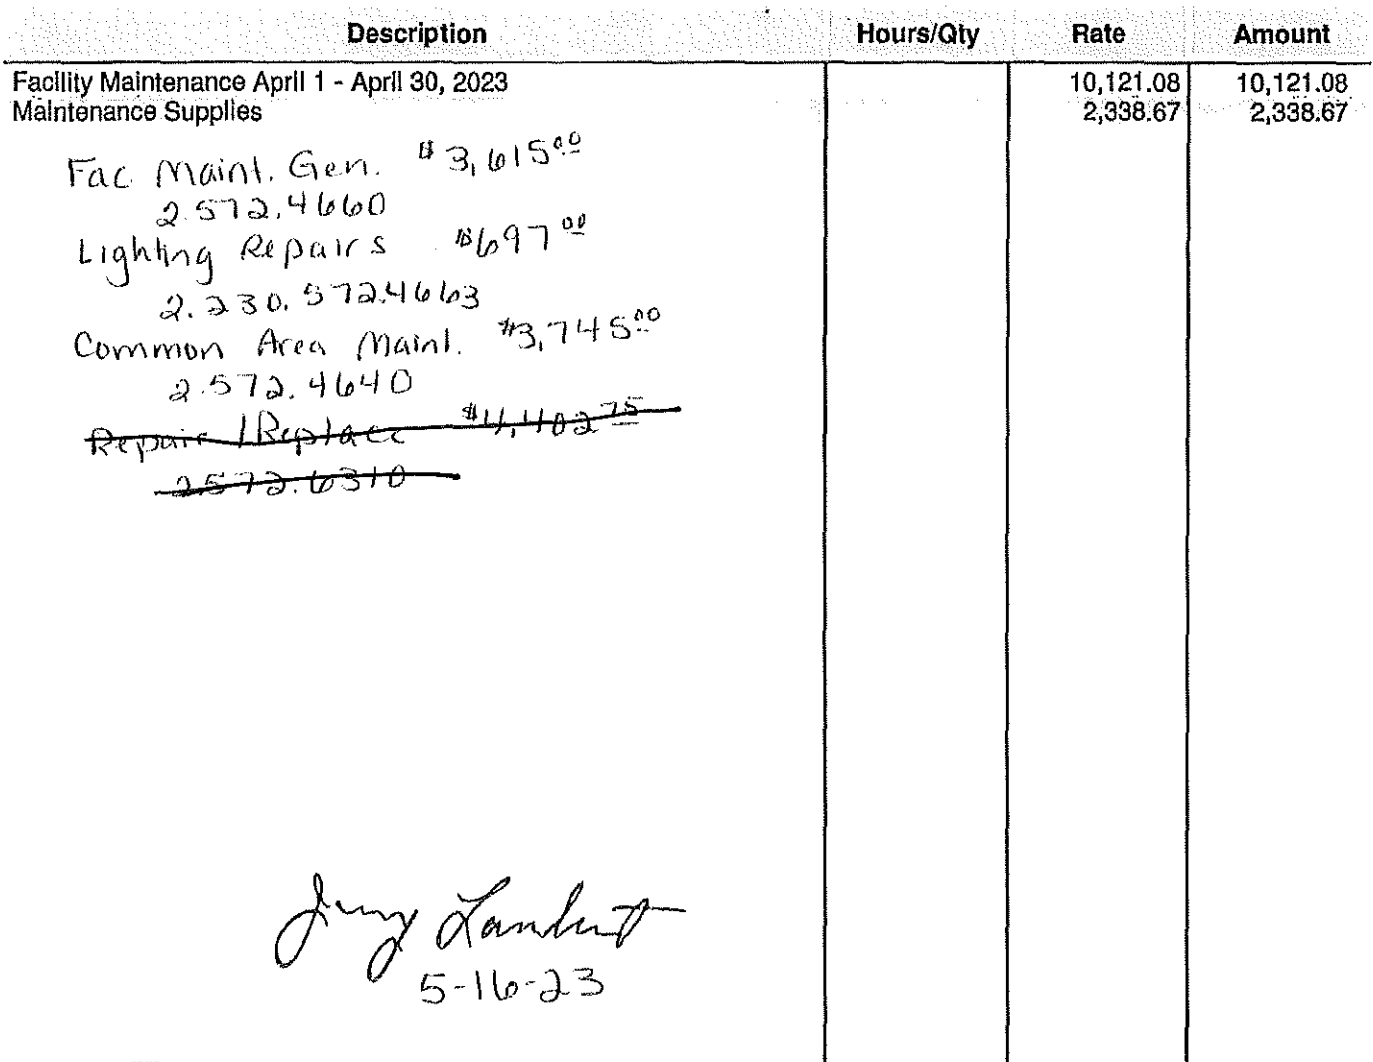 Description Hours/Qty Rate Amount
Facility Maintenance April 1 - April 30, 2023 10,121.08 10,121.08
Maintenance Supplies 2,338.67 2,338.67
Fac Maint. Gen. $3,615.00
2.572.4660
Lighting Repairs $697.00
2.230.572.4663
Common Area Maint. $3,745.00
2.572.4640
Repair/Replace $4,402.75
2.572.6310
Jerry Lambert
5-16-23